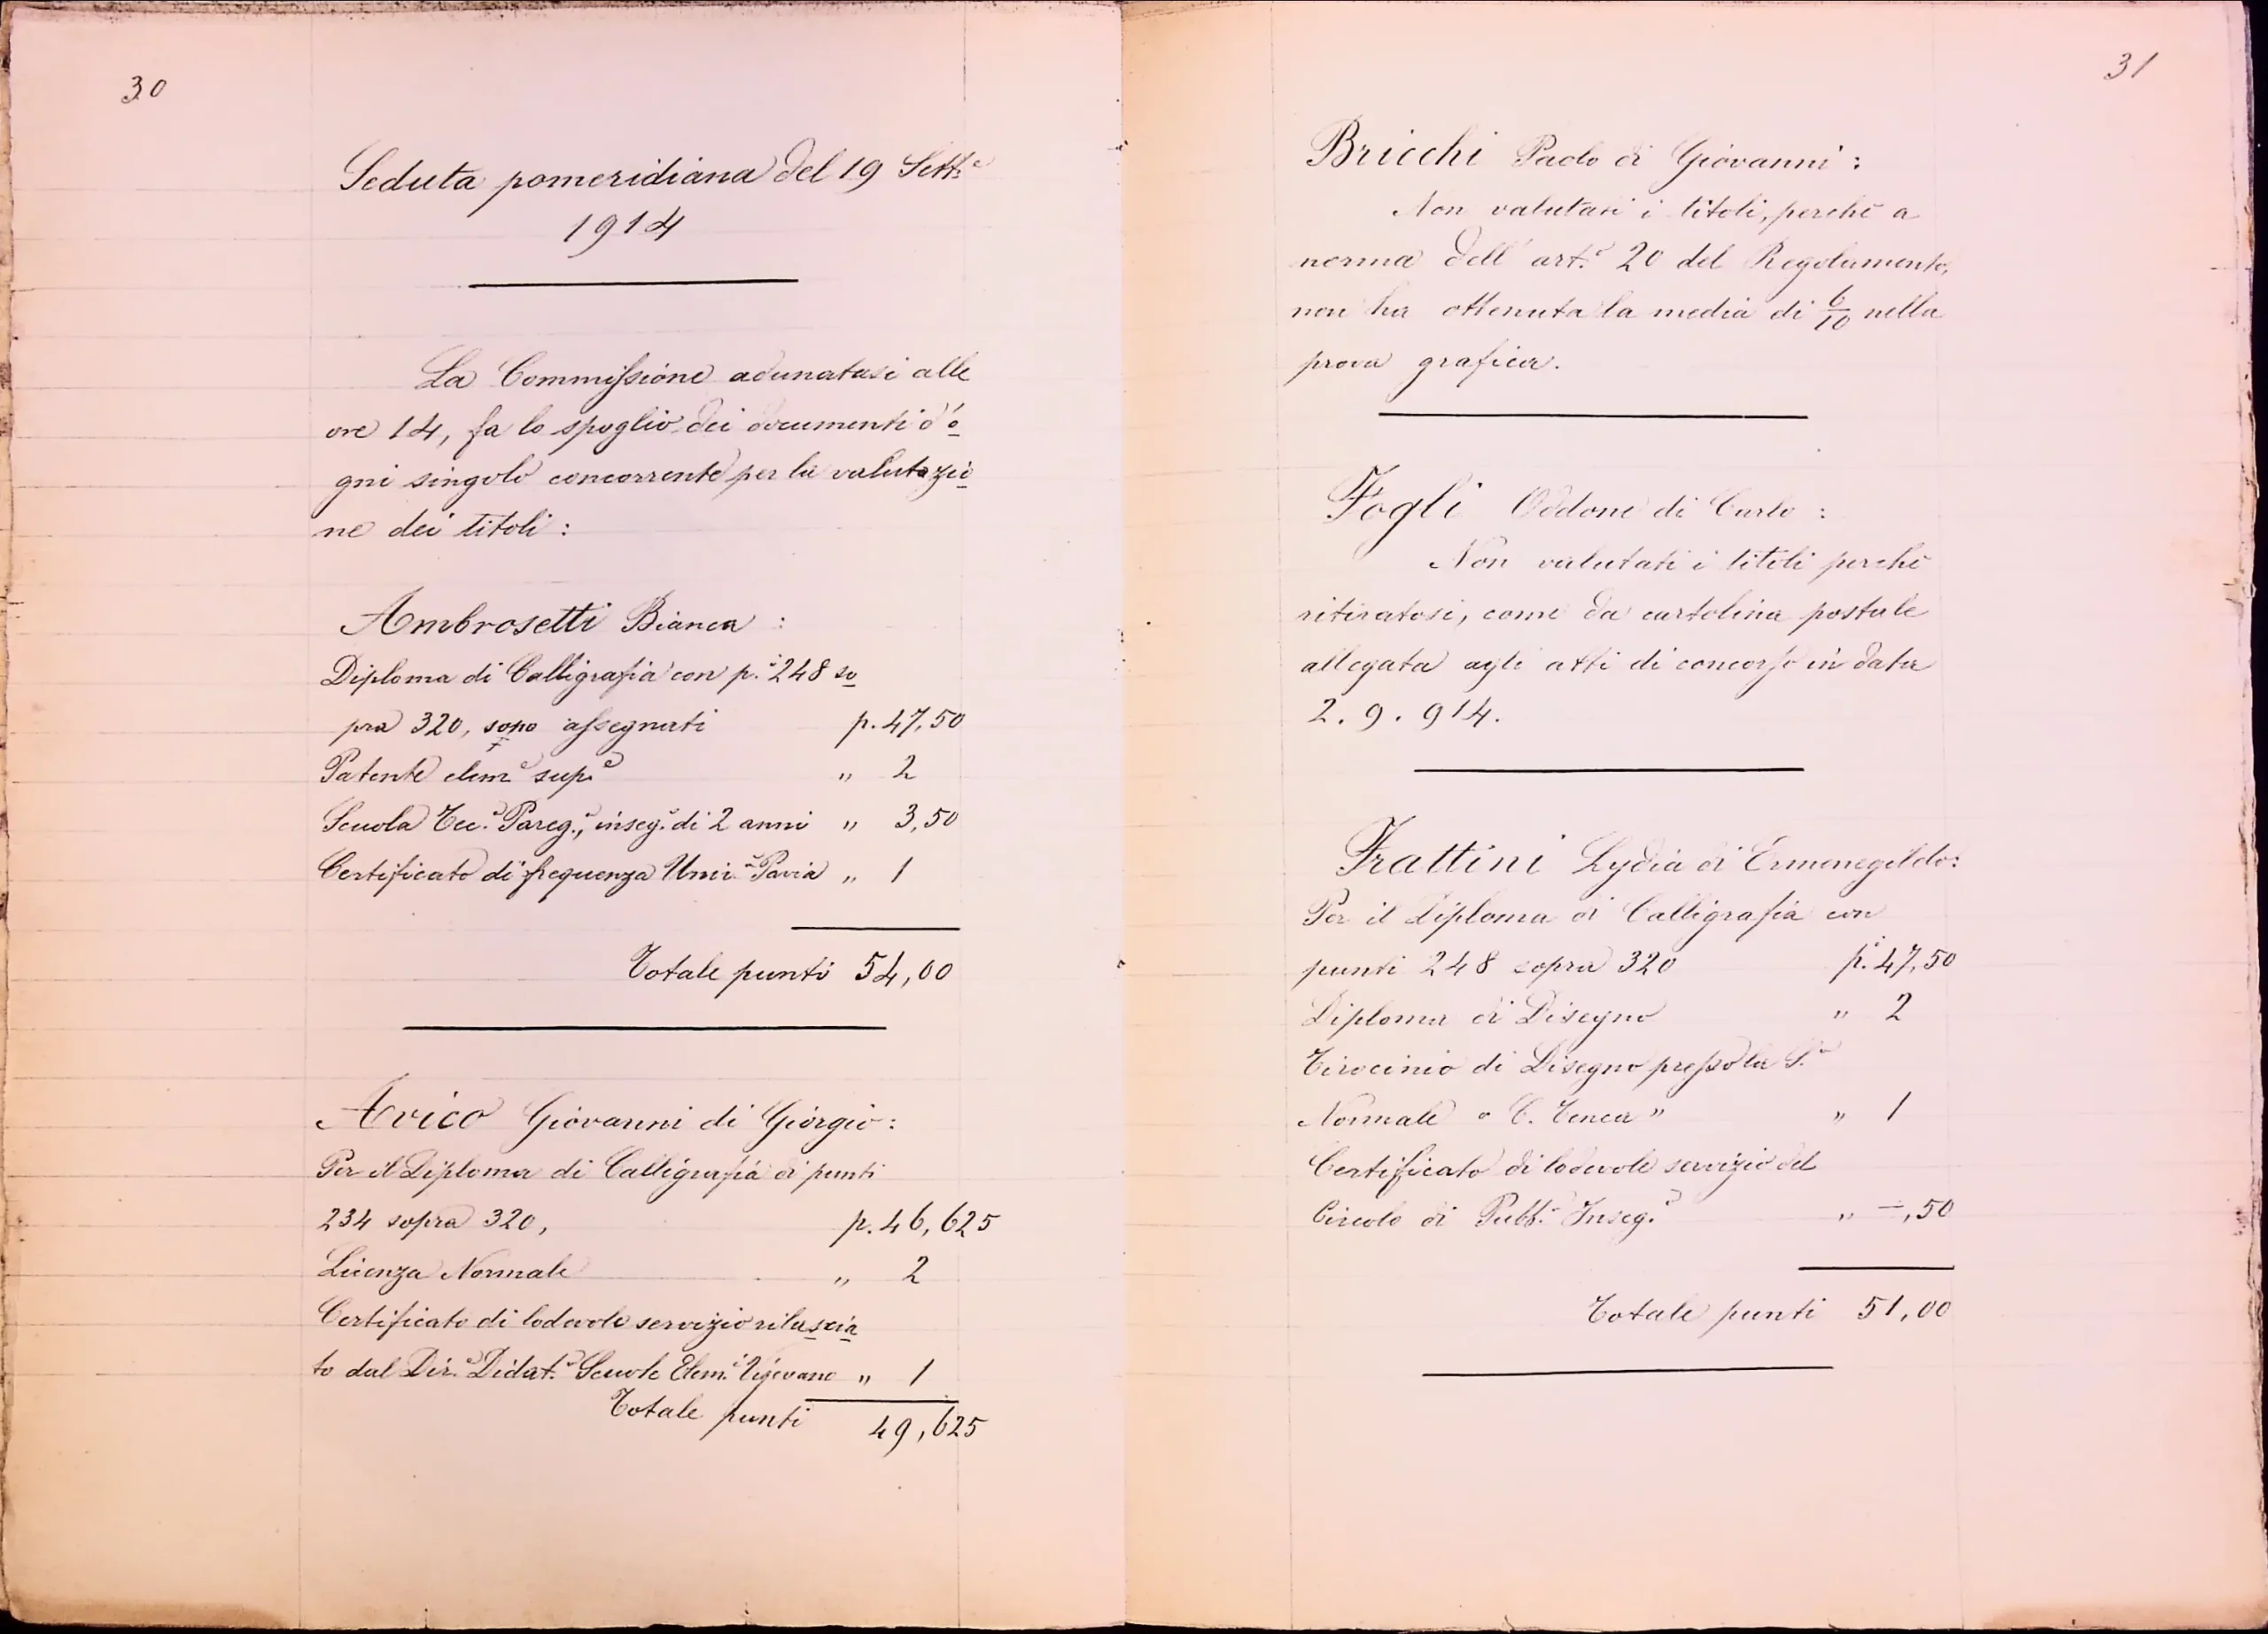 30
Seduta pomeridiana del 19 Sett.e
1914
La Commissione adunatasi alle
ore 14, fa lo spoglio dei documenti d'o
gni singolo concorrente per la valutazio
ne dei titoli:
Ambrosetti Bianca:
Diploma di Calligrafia con p.i 248 so
pra 320, sono assegnati p. 47,50
Patente elem.e sup.e " 2
Scuola Tec.a Pareg.a, inseg.e di 2 anni " 3,50
Certificato di frequenza Univ. Pavia " 1
Totale punti 54,00
Avico Giovanni di Giorgio:
Per il Diploma di Calligrafia di punti
234 sopra 320, p. 46,625
Licenza Normale " 2
Certificato di lodevole servizio rilascia
to dal Dir.e Didat.o Scuole Elem.i Vigevano " 1
Totale punti 49,625
31
Bricchi Paolo di Giovanni:
Non valutati i titoli, perchè a
norma dell'art.o 20 del Regolamento,
non ha ottenuta la media di 6/10 nella
prova grafica.
Fogli Oddone di Carlo:
Non valutati i titoli perchè
ritiratosi, come da cartolina postale
allegata agli atti di concorso in data
2.9.914.
Frattini Lydia di Ermenegildo:
Per il Diploma di Calligrafia con
punti 248 sopra 320 p.i 47,50
Diploma di Disegno " 2
Tirocinio di Disegno presso la S.a
Normale "C. Tenca" " 1
Certificato di lodevole servizio del
Circolo di Pubb.o Inseg.o " –,50
Totale punti 51,00